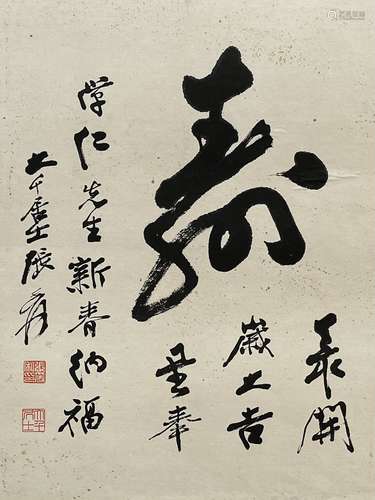 壽
開
歲大吉
奉
學仁先生新春納福
大千居士張爰